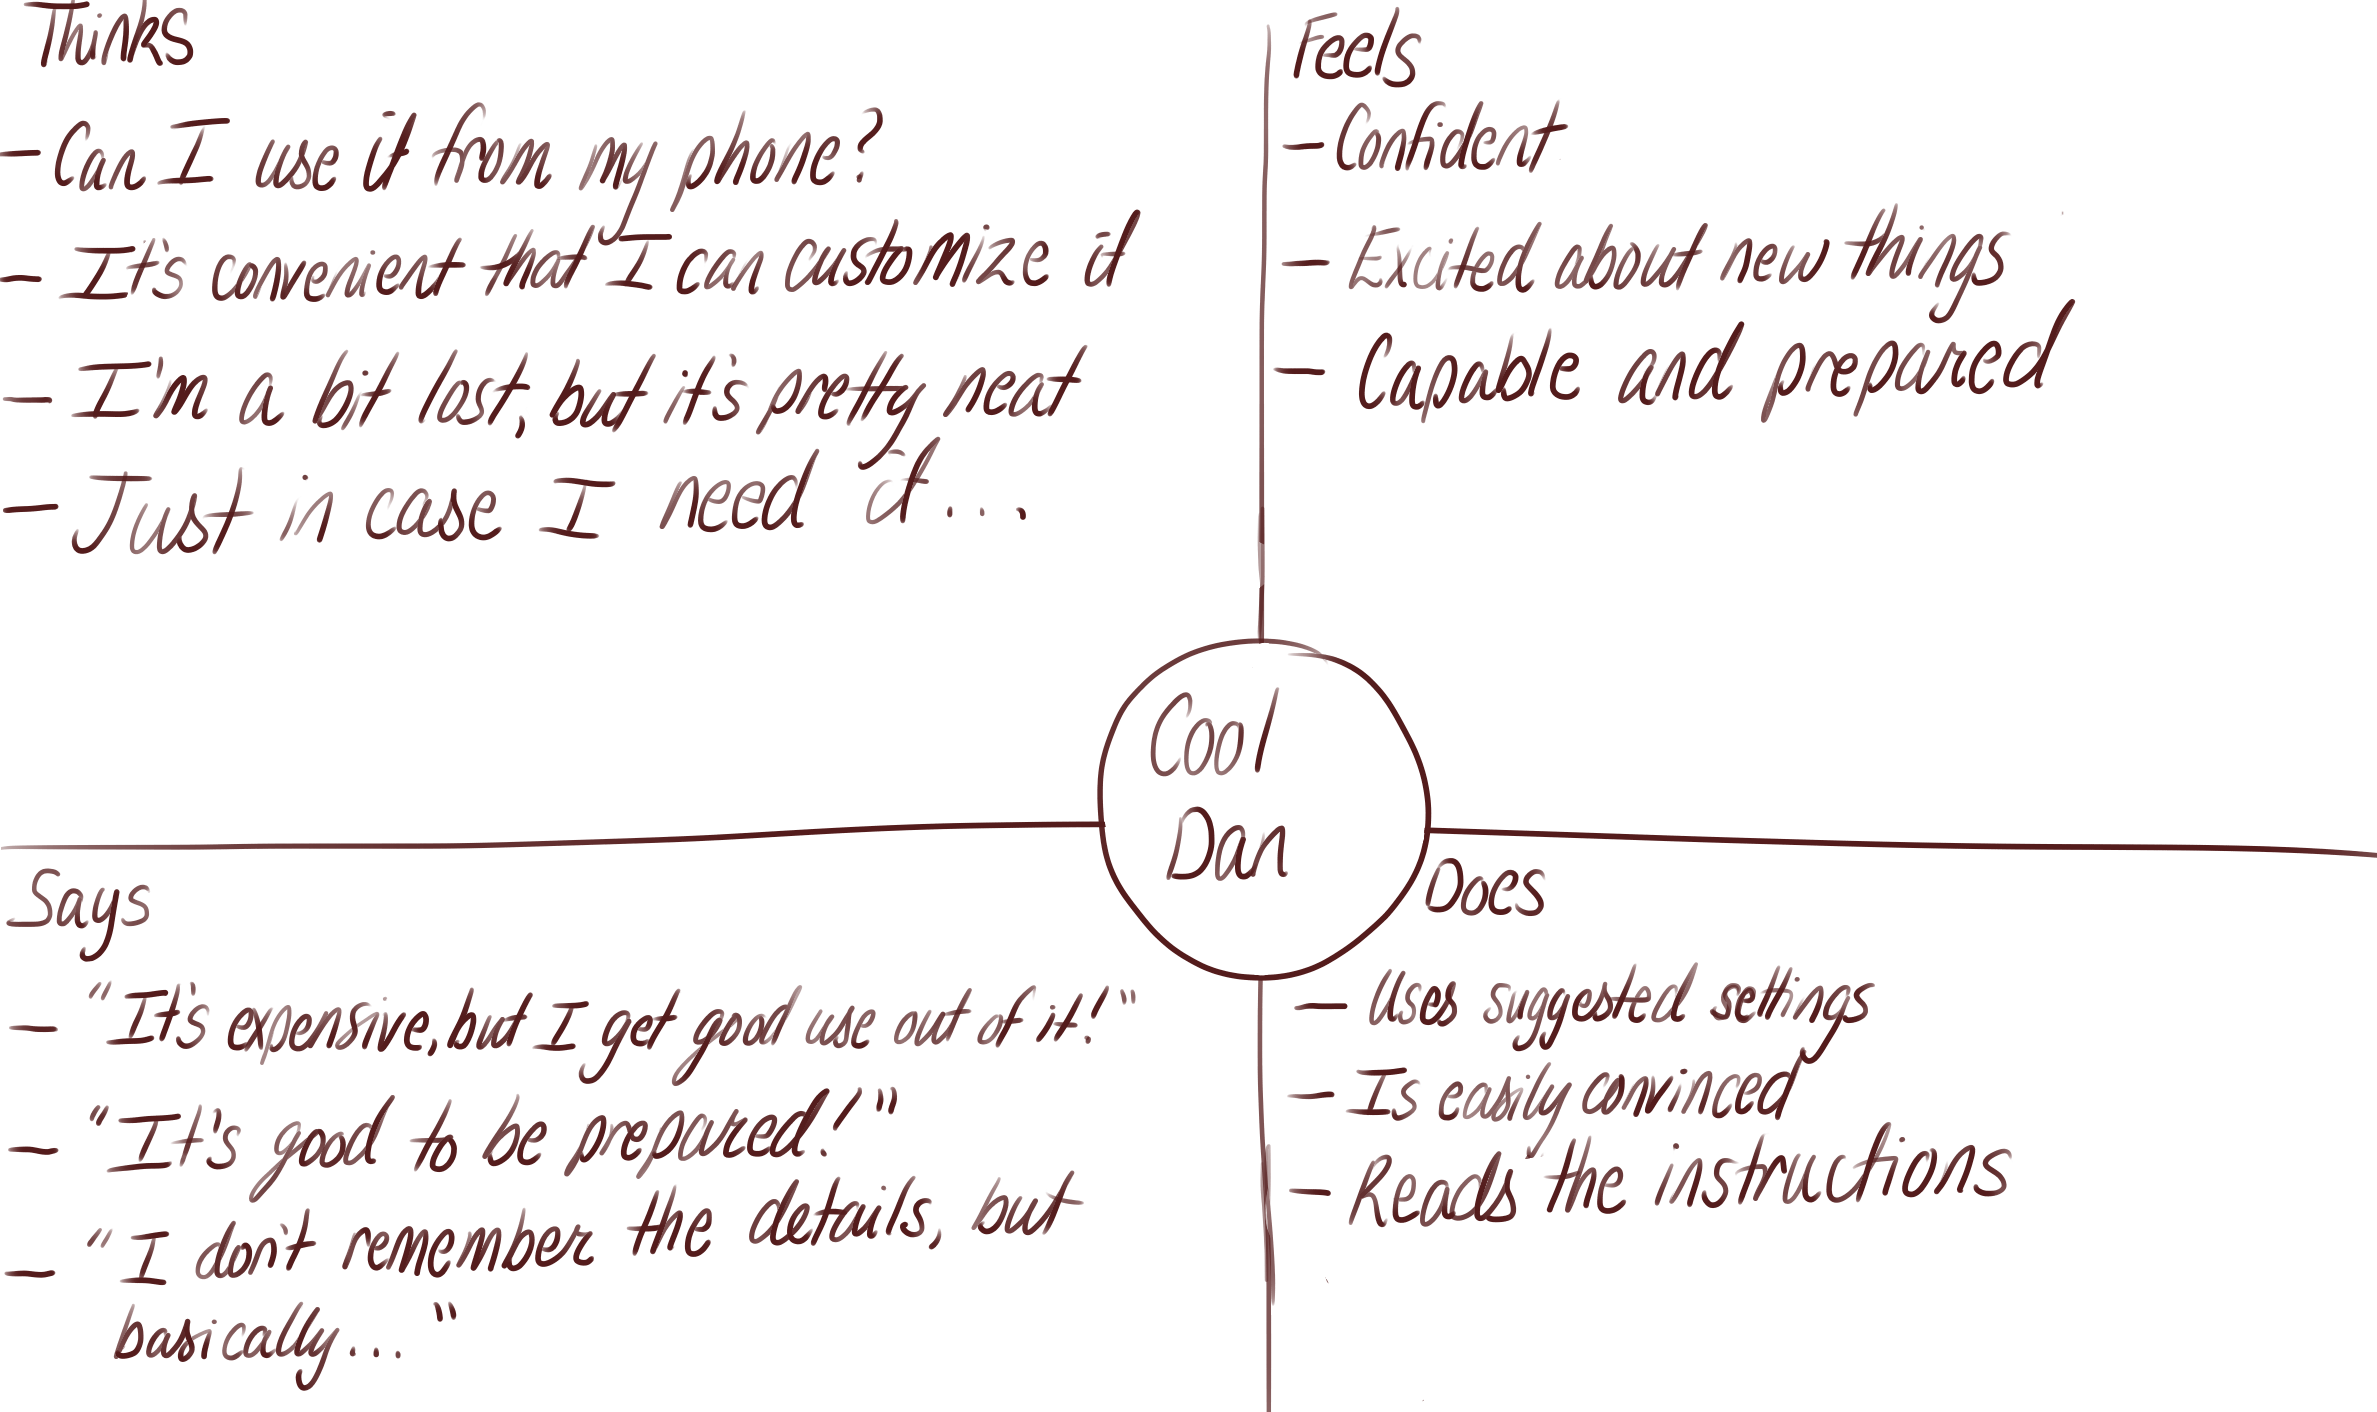 Thinks
- Can I use it from my phone?
- It's convenient that I can customize it
- I'm a bit lost, but it's pretty neat
- Just in case I need it....
Feels
- Confident
- Excited about new things
- Capable and prepared
Cool
Dan
Says
- "It's expensive, but I get good use out of it!"
- "It's good to be prepared!"
- "I don't remember the details, but
basically..."
Does
- Uses suggested settings
- Is easily convinced
- Reads the instructions